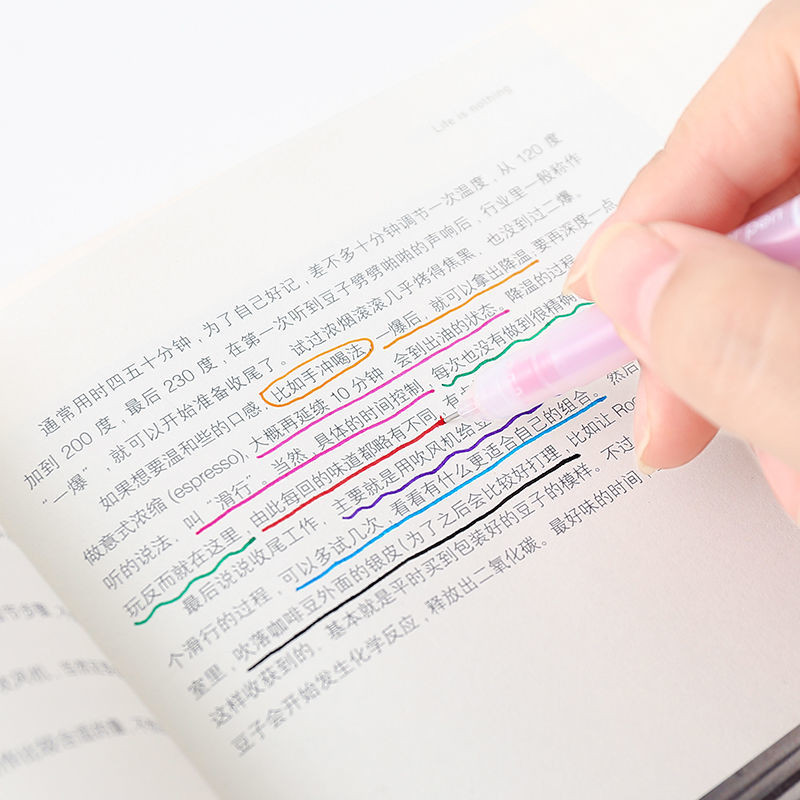 Life is nothing
通常用时四五十分钟，为了自己好记，差不多十分钟调节一次温度，从 120 度
加到 200 度，最后 230 度，在第一次听到豆子劈劈啪啪的声响后，行业里一般称作
“一爆”，就可以开始准备收尾了。试过浓烟滚滚几乎烤得焦黑，也没到过二爆。
如果想要温和些的口感，比如手冲喝法，一爆后，就可以拿出降温 要再深度一点
做意式浓缩 (espresso)，大概再延续 10 分钟，会到出油的状态。降温的过程
听的说法，叫“滑行”。当然，具体的时间控制，每次也没有做到很精确
玩反而就在这里，由此每回的味道都略有不同，有
最后说说收尾工作，主要就是用吹风机给豆
个滑行的过程，可以多试几次，看看有什么更适合自己的组合。然后
室里，吹落咖啡豆外面的银皮(为了之后会比较好打理，比如让 Ro
这样收获到的，基本就是平时买到包装好的豆子的模样。不过
豆子会开始发生化学反应，释放出二氧化碳。最好味的时间
pen